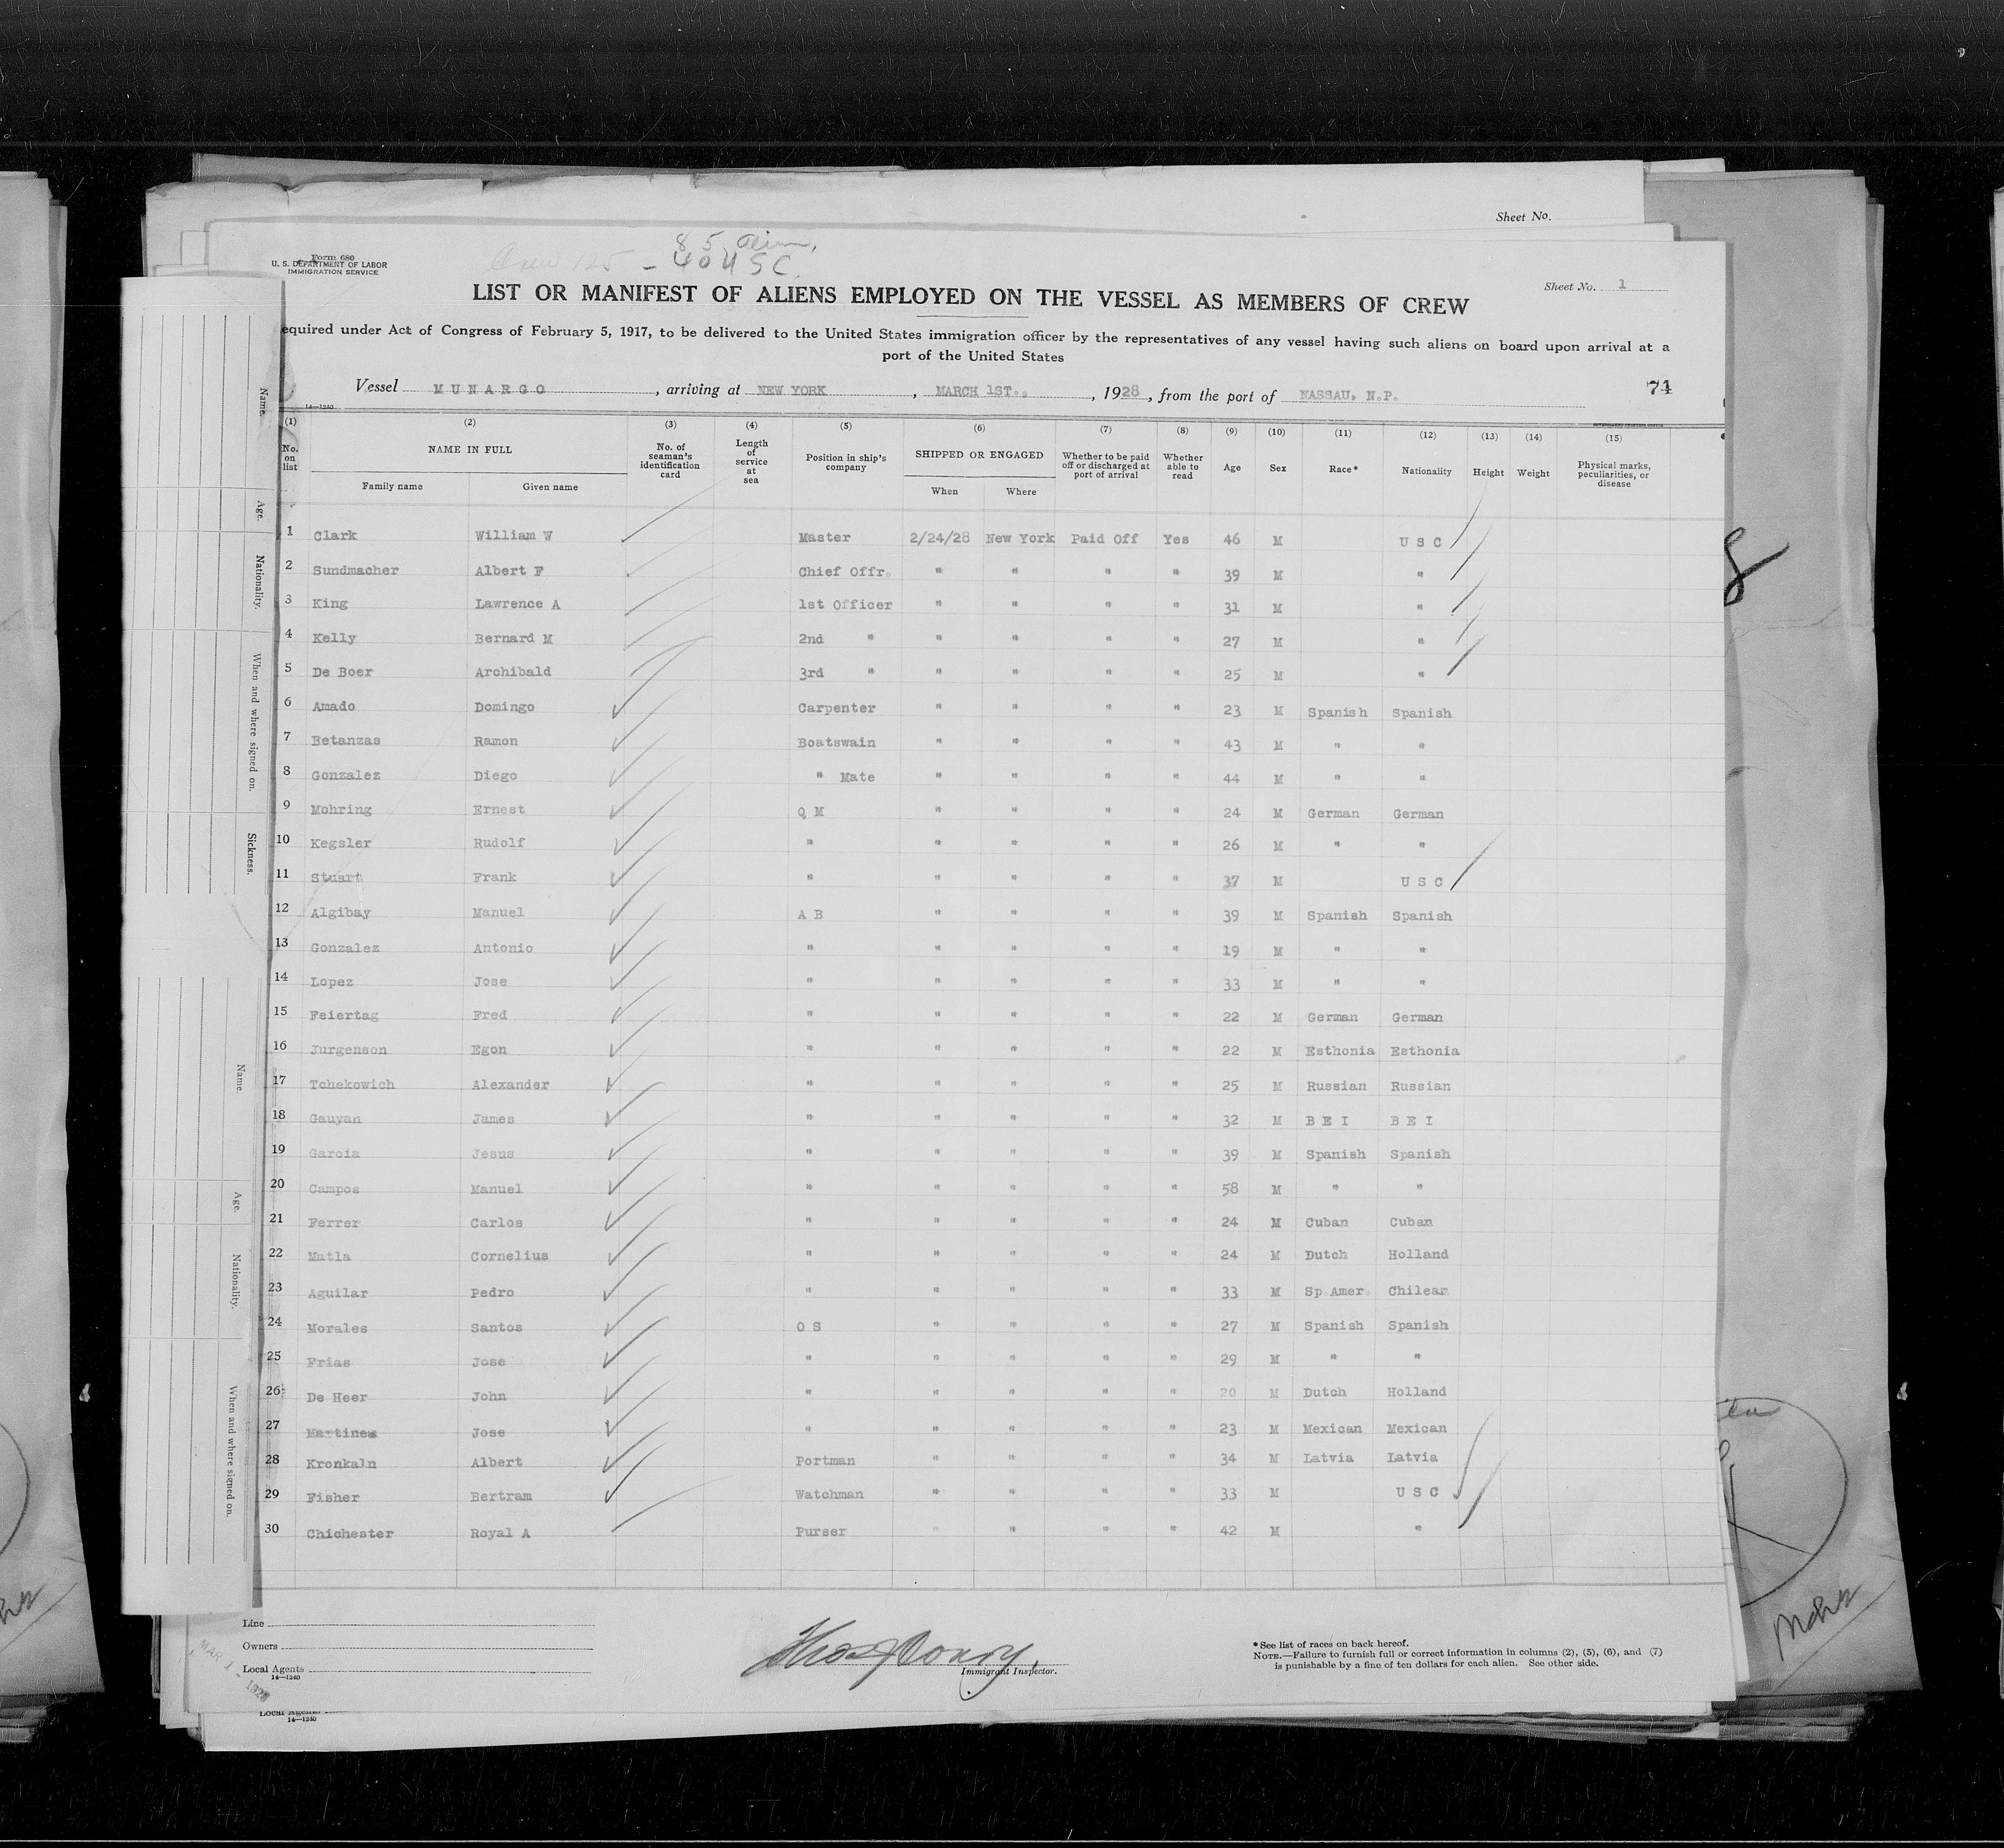 Sheet No.
Form 680
U. S. DEPARTMENT OF LABOR
IMMIGRATION SERVICE
Crew 125 - 85 Alien,
40 USC.
Sheet No. 1
LIST OR MANIFEST OF ALIENS EMPLOYED ON THE VESSEL AS MEMBERS OF CREW
equired under Act of Congress of February 5, 1917, to be delivered to the United States immigration officer by the representatives of any vessel having such aliens on board upon arrival at a
port of the United States
Vessel MUNARGO, arriving at NEW YORK, MARCH 1ST., 1928, from the port of NASSAU, N.P. 74
14—1240
(1) (2) (3) (4) (5) (6) (7) (8) (9) (10) (11) (12) (13) (14) (15)
No. on list NAME IN FULL No. of seaman's identification card Length of service at sea Position in ship's company SHIPPED OR ENGAGED Whether to be paid off or discharged at port of arrival Whether able to read Age Sex Race* Nationality Height Weight Physical marks, peculiarities, or disease
Family name Given name When Where
1 Clark William W Master 2/24/28 New York Paid Off Yes 46 M U S C
2 Sundmacher Albert F Chief Offr. " " " " 39 M "
3 King Lawrence A 1st Officer " " " " 31 M "
4 Kelly Bernard M 2nd " " " " " 27 M "
5 De Boer Archibald 3rd " " " " " 25 M "
6 Amado Domingo Carpenter " " " " 23 M Spanish Spanish
7 Betanzas Ramon Boatswain " " " " 43 M " "
8 Gonzalez Diego " Mate " " " " 44 M " "
9 Mohring Ernest Q M " " " " 24 M German German
10 Kegsler Rudolf " " " " " 26 M " "
11 Stuart Frank " " " " " 37 M U S C
12 Algibay Manuel A B " " " " 39 M Spanish Spanish
13 Gonzalez Antonio " " " " " 19 M " "
14 Lopez Jose " " " " " 33 M " "
15 Feiertag Fred " " " " " 22 M German German
16 Jurgenson Egon " " " " " 22 M Esthonia Esthonia
17 Tchekowich Alexander " " " " " 25 M Russian Russian
18 Gauyan James " " " " " 32 M B E I B E I
19 Garcia Jesus " " " " " 39 M Spanish Spanish
20 Campos Manuel " " " " " 58 M " "
21 Ferrer Carlos " " " " " 24 M Cuban Cuban
22 Matla Cornelius " " " " " 24 M Dutch Holland
23 Aguilar Pedro " " " " " 33 M Sp Amer. Chilean
24 Morales Santos O S " " " " 27 M Spanish Spanish
25 Frias Jose " " " " " 29 M " "
26 De Heer John " " " " " 20 M Dutch Holland
27 Martinez Jose " " " " " 23 M Mexican Mexican
28 Kronkaln Albert Portman " " " " 34 M Latvia Latvia
29 Fisher Bertram Watchman " " " " 33 M U S C
30 Chichester Royal A Purser " " " " 42 M "
Name.
Age.
Nationality.
When and where signed on.
Sickness.
Name.
Age.
Nationality.
When and where signed on.
Line
Owners
Local Agents
14—1240
MAR 1 - 1928
Immigrant Inspector.
*See list of races on back hereof.
NOTE.—Failure to furnish full or correct information in columns (2), (5), (6), and (7)
is punishable by a fine of ten dollars for each alien. See other side.
Local Agents
14—1240